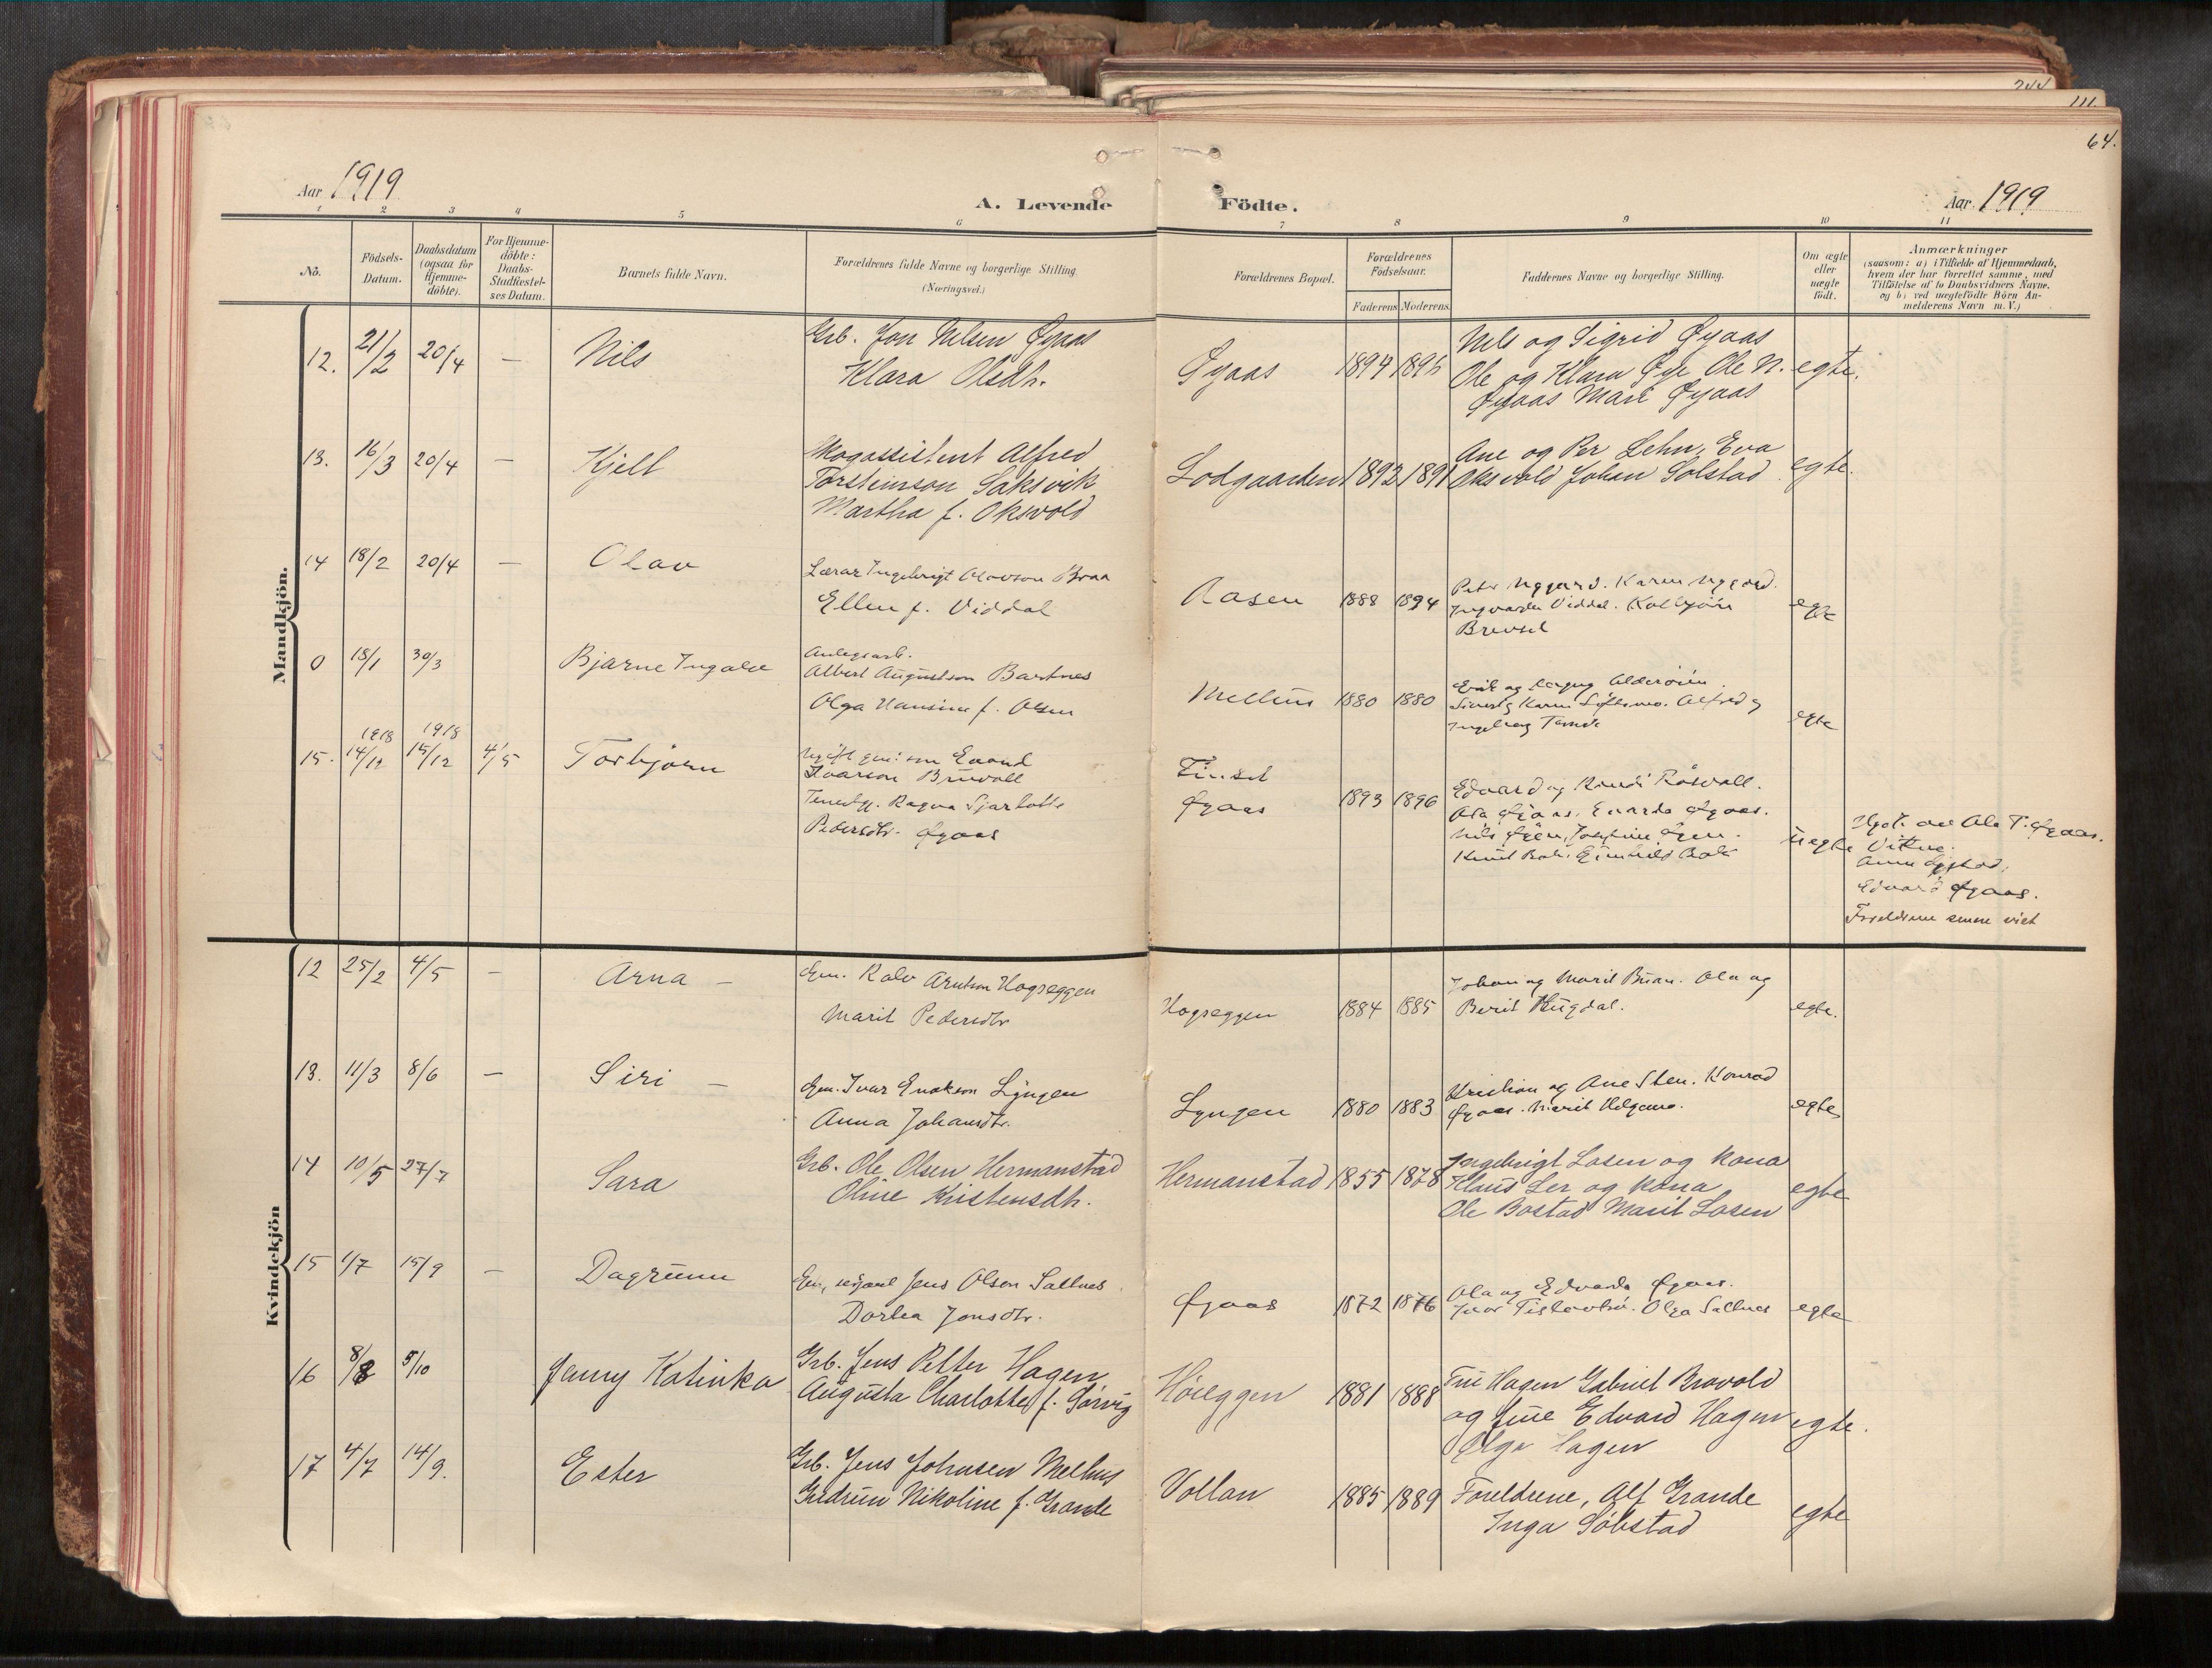 244
111.
64.
Aar 1919
A. Levende Födte.
Aar. 1919
1 2 3 4 5 6 7 8 9 10 11
No.
Födsels-Datum.
Daabsdatum (ogsaa for Hjemme-döbte).
For Hjemme-döbte: Daabs-Stadfæstel-ses Datum.
Barnets fulde Navn.
Forældrenes fulde Navne og borgerlige Stilling
(Næringsvei.)
Forældrenes Bopæl.
Forældrenes Födselsaar.
Faderens Moderens
Faddernes Navne og borgerlige Stilling.
Om ægte eller uægte födt.
Anmærkninger
(saasom: a) i Tilfælde af Hjemmedaab,
hvem der har forrettet samme, med
Tilföielse af to Daabsvidners Navne.
og b) ved uægtefödte Börn An-
melderens Navn m. V.)
Mandkjön.
12. 21/2 20/4 — Nils
Grb. Jon Nilsen Øyaas
Klara Olsdtr.
Øyaas 1894 1896
Nils og Sigrid Øyaas
Ole og Klara Øye Ole N.
Øyaas Marit Øyaas
egte.
13. 16/3 20/4 — Kjell
Skogassistent Alfred
Torsteinson Saksvik
Martha f. Oksvold
Lodgaarden 1892 1891
Ane og Per Lehn, Eva
Oksvold Johan Solstad
egte.
14 18/2 20/4 — Olav
Lærar Ingebrigt Olavson Braa
Ellen f. Viddal
Rosen 1888 1894
Peter Nygard. Karen Nygard.
Ingvarda Viddal. Kolbjörn
egte
0 18/1 30/3 Bjarne Ingolv
Anlegsarb.
Albert Augustson Bartnes
Olga Hansine f. Olsen
Melhus 1880 1880
Ingeborg
egte
15. 1918 14/12 1918 15/12 4/5 Torbjörn
Ugift son Eivind
Ivarson
Ragna Sjarlotte
Pedersdtr. Øyaas
Øyaas 1893 1896
Edvard og
Ola Øyaas, Edvarda Øyaas.
Nils Øyen, Josephine Øyen.
Knut Bak. Gunhild Bak
uegte
Hjd. av Ola T. Øyaas.
Vitne:
Edvard Øyaas.
Foreldrene senere viet
Kvindekjön
12 25/2 4/5 — Arna —
Gm. Kalv Arntson Hogseggen
Marit Pedersdtr
Hogseggen 1884 1885
Johan og Marit Buan. Ola og
Berit Hugdal.
egte.
13. 11/3 8/6 — Siri —
Gm. Ivar Enokson Lyngen
Anna Johansdtr.
Lyngen 1880 1883
Kristian og Ane Sten. Konrad
Øyaas. Marit Helgemo.
egte
14 10/5 27/7 Sara
Grb. Ole Olsen Hermanstad
Oline Kristensdtr.
Hermanstad 1855 1878
Ingebrigt Losen og kona
Klaus Ler og kona
Ole Bostad Marit Losen
egte
15 1/7 15/9 — Dagrunn
Gm, Jens Olsen Saltnes
Dortea Jonsdtr.
Øyaas 1872 1876
Ola og Edvarda Øyaas.
Olga Saltnes
egte
16 8/8 5/10 Jenny Katinka
Grb. Jens Petter Hagen
Augusta Charlotte f. Sörvig
Höieggen 1881 1888
Hagen Gabriel Brovold
og frue Edvard Hagen
Olga Hagen
egte.
17 4/7 14/9. Ester
Grb. Jens Johnsen Melhus
Gudrun Nikoline f. Grande
Vollan 1885 1889
Foreldrene, Alf Grande
Inga Söbstad
egte